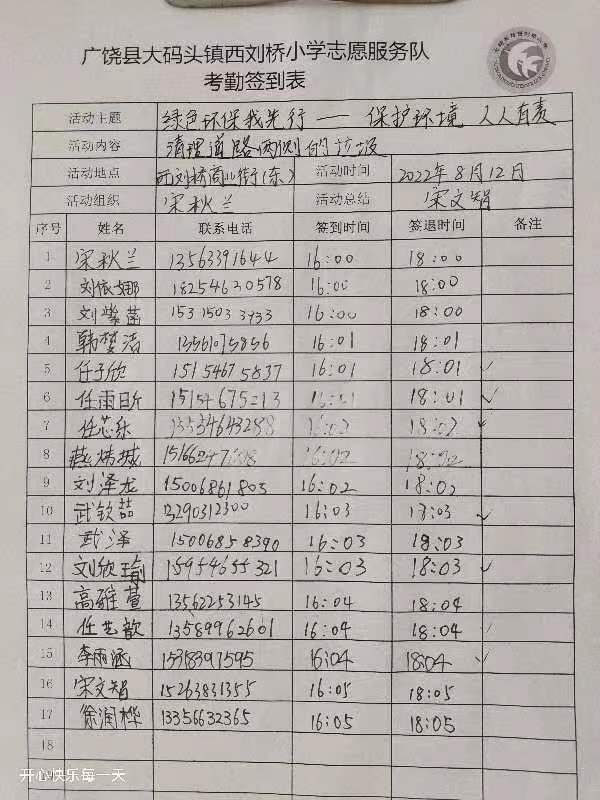 广饶县大码头镇西刘桥小学志愿服务队
考勤签到表
活动主题 绿色环保我先行 — 保护环境 人人有责
活动内容 清理道路两侧的垃圾
活动地点 西刘桥商业街(东) 活动时间 2022年8月12日
活动组织 宋秋兰 活动总结 宋文智
序号 姓名 联系电话 签到时间 签退时间 备注
1 宋秋兰 13563391644 16:00 18:00
2 刘依娜 18254630578 16:00 18:00
3 刘紫茵 15315033933 16:00 18:00
4 韩梦洁 13561075856 16:01 18:01
5 任子欣 15154675837 16:01 18:01 ✓
6 任雨昕 15154675213 16:01 18:01 ✓
7 任芯乐 16:02 18:02
8 16:02 18:02
9 刘泽龙 15006861805 16:02 18:02
10 武钦喆 13290312300 16:03 18:03 ✓
11 武泽 15006858390 16:03 18:03
12 刘欣瑜 15954655321 16:03 18:03 ✓
13 高雅萱 13562253145 16:04 18:04
14 任艺歆 13589962601 16:04 18:04 ✓
15 李雨涵 15318397595 16:04 18:04 ✓
16 宋文智 15263831355 16:05 18:05
17 徐润桦 13356632365 16:05 18:05
18
开心快乐每一天